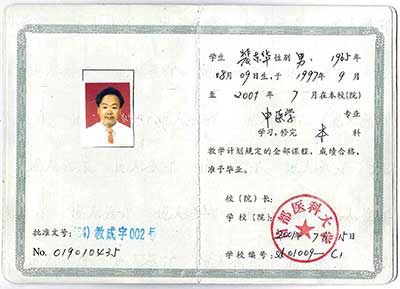 学生 性别 男, 1965年
08月09日生,于1997年9月
至2001年7月在本校(院)
中医学 专业
学习,修完 本 科
教学计划规定的全部课程,成绩合格,
准予毕业。
校(院)长:
学校(院):
都医科大
2001年7月15日
批准文号: 教成字002号
No. 019010435
学校编号: 01009—C1